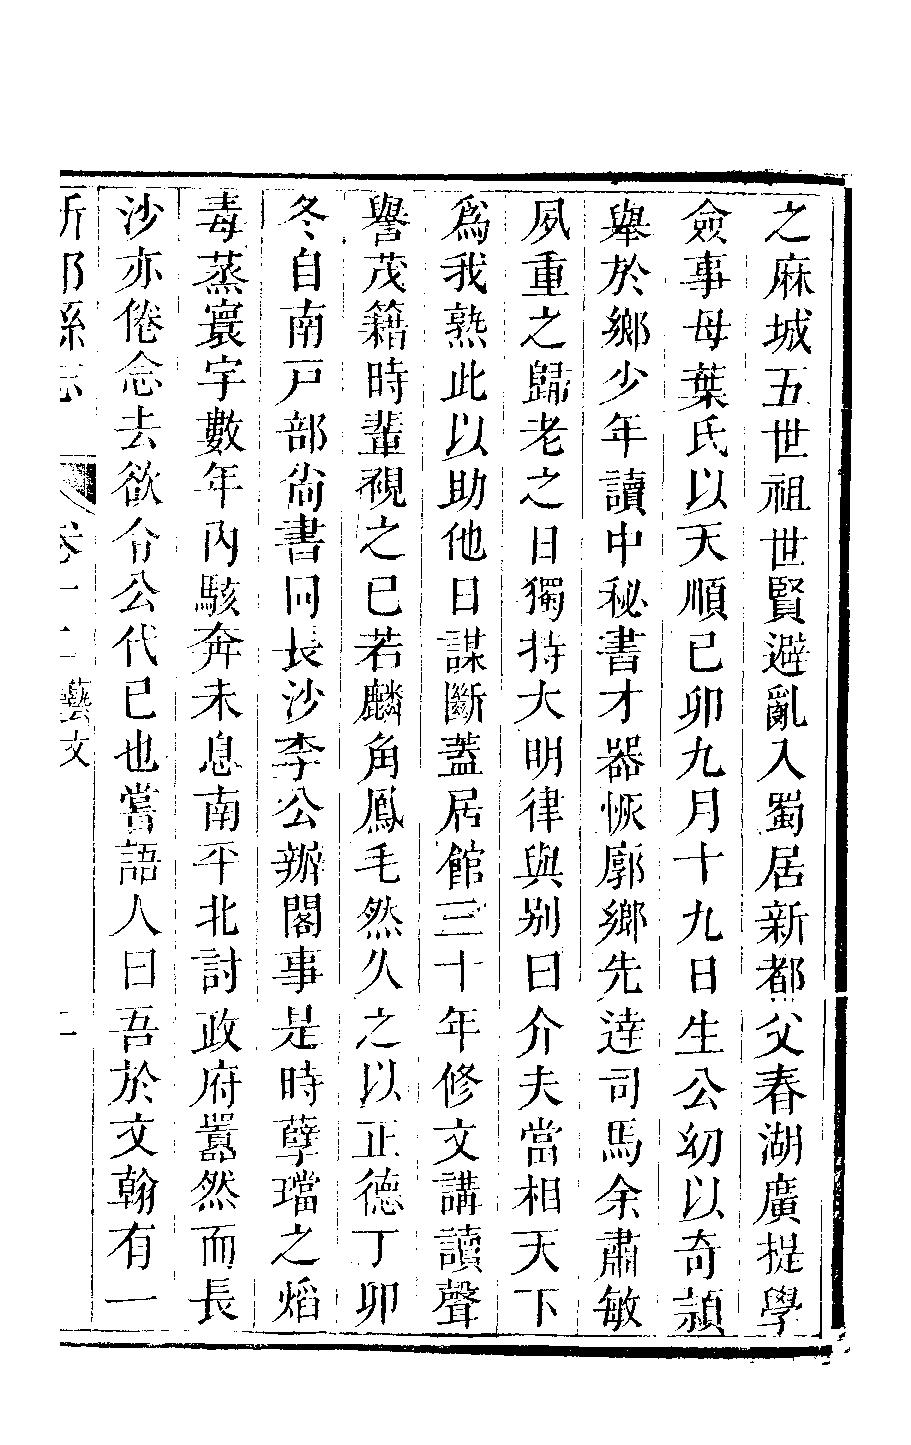 之麻城五世祖世賢避亂入蜀居新都父春湖廣提學
僉事母葉氏以天順己卯九月十九日生公幼以奇穎
舉於鄉少年讀中秘書才器恢廓鄉先達司馬余肅敏
夙重之歸老之日獨持大明律與别曰介夫當相天下
爲我熟此以助他日謀斷蓋居館三十年修文講讀聲
譽茂籍時輩視之已若麟角鳳毛然久之以正德丁卯
冬自南戸部尙書同長沙李公辦閣事是時孽璫之熖
毒蒸寰宇數年內駭奔未息南平北討政府嚣然而長
沙亦倦念去欲令公代已也嘗語人曰吾於文翰有一
新都縣志 卷十二 藝文 二